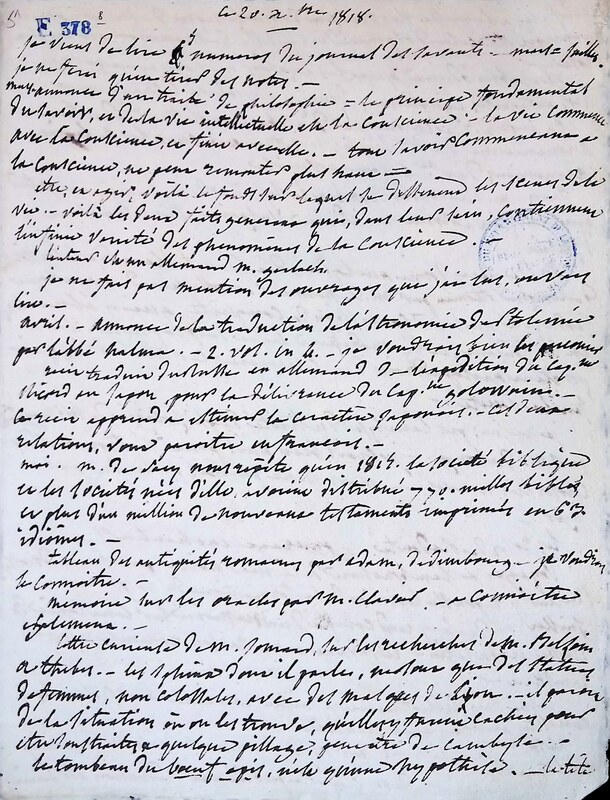 ce 20. Xbre 1818.
E 378
je viens de lire 5 numeros du journal des savants - mars = juillet.
je ne ferai qu'en tirer des notes. -
mars annonce d'un traité de philosophie = le principe fondamental
du savoir, et de la vie intellectuelle est la Conscience - la vie commence
avec la Conscience, et finie avec elle. - tout savoir commençant a
la Conscience, ne peut remonter plus haut =
etre, et agir, voilà le fond sur lequel se dessinent les scenes de la
vie. - voilà les deux faits generaux qui, dans leur sein, contiennent
l'infinie varieté des phenomenes de la Conscience. -
l'auteur est un allemand m. gerlach
je ne fais pas mention des ouvrages que j'ai lus, ou vais
lire. -
avril. - annonce de la traduction de l'astronomie de Ptolemée
par l'abbé halma. - 2. vol. in 4. - je voudrais bien lire
recit traduit du russe en allemand de l'expedition du Cap.ne
ricord au Japon, pour la délivrance du Cap.ne golownin. -
ce recit apprend a estimer le caractere japonois. - ces deux
relations, vont paroitre en francois. -
mai. m. de Sacy nous répète qu'en 1817. la societé biblique
et les societés nées d'elle, avoient distribué 770. milles bibles
et plus d'un million de nouveaux testaments imprimés en
idiomes. -
tableau des antiquités romaines par adam, d'édimbourg - je voudrois
le connoitre. -
mémoire sur les oracles par m. Clavier - a connoitre
egalement. -
lettre curieuse de m. Jomard, sur les recherches de m. Belzoni
a thebes. - les sphinx dont il parle, ne sont que des statues
de femmes, non colossales, avec des masques de Lion. - il paroit
de la situation où on les trouve, qu'elles y furent cachées pour
etre soustraites a quelque pillage, peut etre de cambyse. -
le tombeau du bœuf apis, n'est qu'une hypothese. - la tête